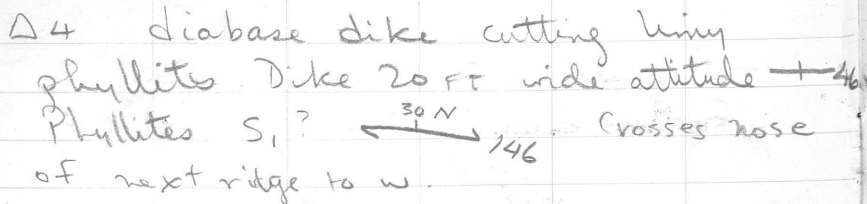 Δ4 diabase dike cutting limy
phyllites. Dike 20 FT wide attitude 46
Phyllites S₁? 30 N 146. Crosses nose
of next ridge to w.